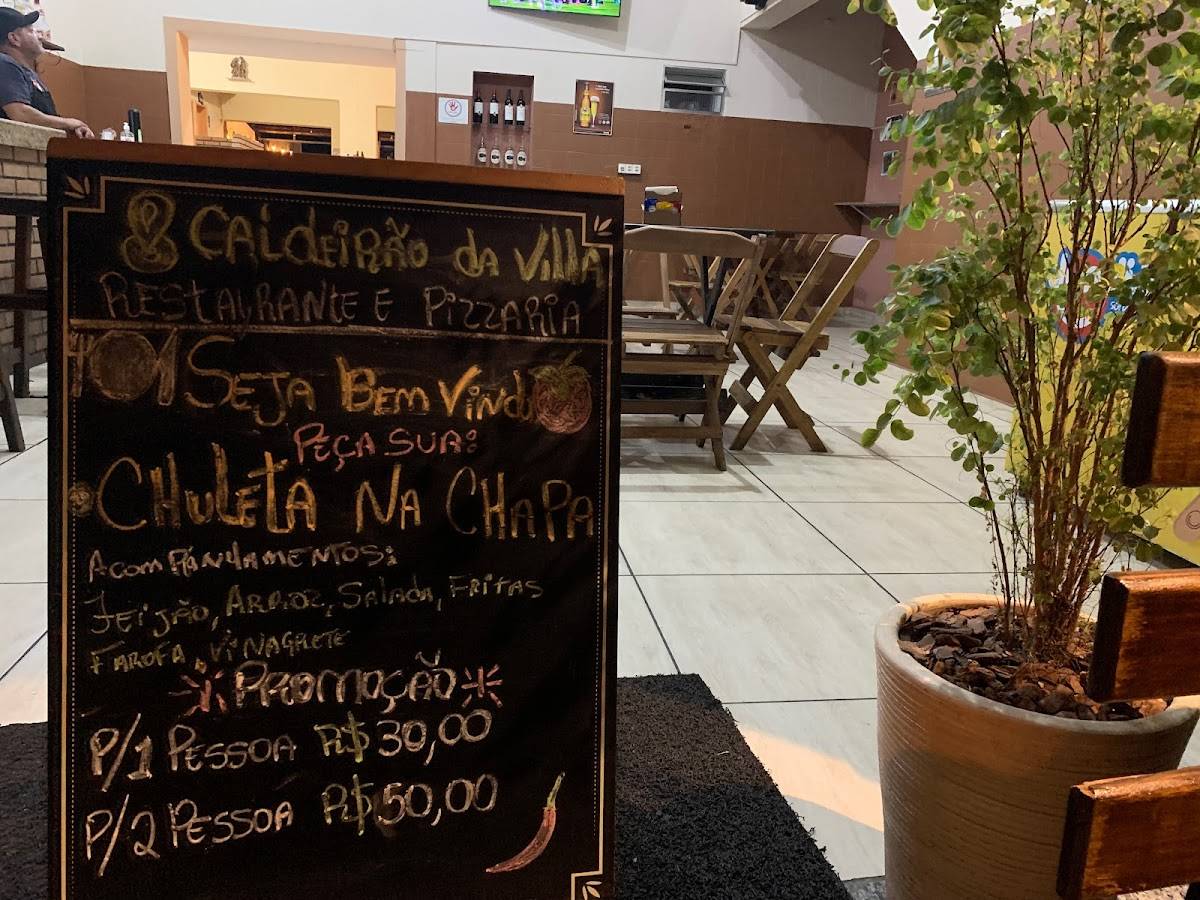 CALDEIRÃO da VILLA
RESTAURANTE E PIZZARIA
SEJA BEM VINDO
PEÇA SUA:
CHULETA NA CHAPA
ACOMPANHAMENTOS:
FEIJÃO, ARROZ, SALADA, FRITAS
FAROFA VINAGRETE
PROMOÇÃO
P/1 PESSOA R$30,00
P/2 PESSOA R$50,00